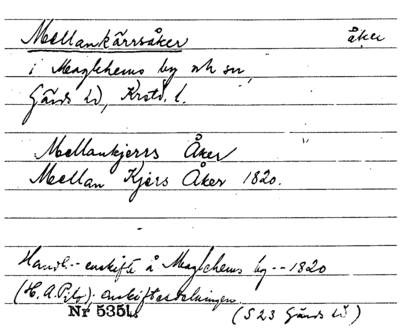 Mellankärrsåker åker
i Maglehems by och sn,
Gärds hd, Krsts. l.
Mellankjerrs Åker "
Mellan Kjers Åker 1820.
Handl-- enskifte å Maglehems by -- 1820
(H.A. Pihl). enskiftesdelningen
Nr 535
(S 23 Gärds hd)